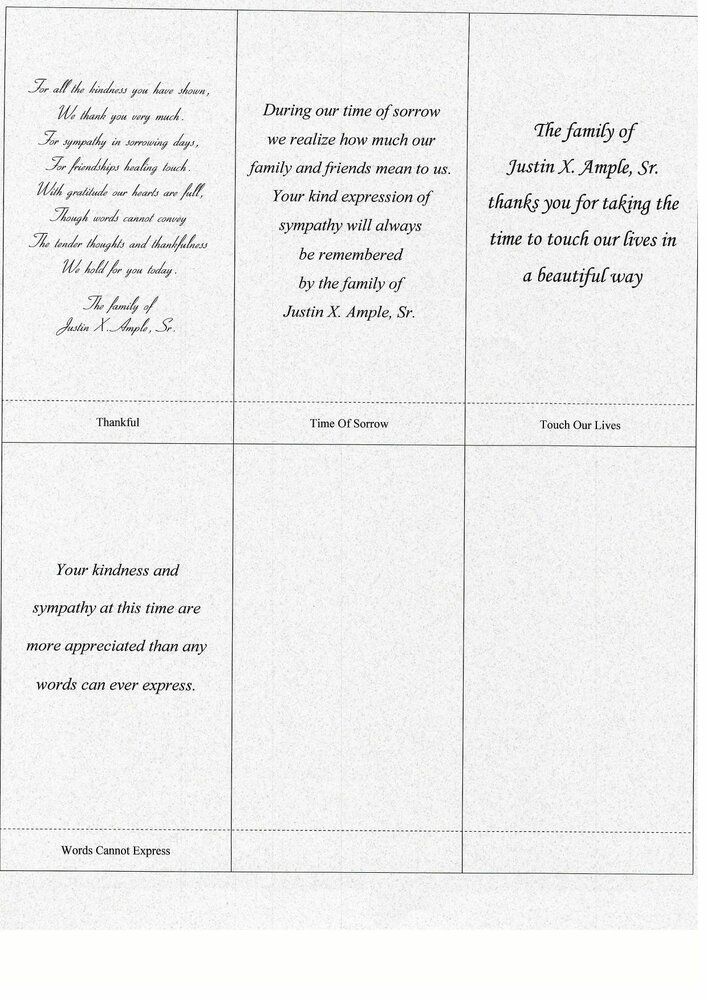 For all the kindness you have shown,
We thank you very much.
For sympathy in sorrowing days,
For friendships healing touch.
With gratitude our hearts are full,
Though words cannot convey
The tender thoughts and thankfulness
We hold for you today.
The family of
Justin X. Ample, Sr.
Thankful
During our time of sorrow
we realize how much our
family and friends mean to us.
Your kind expression of
sympathy will always
be remembered
by the family of
Justin X. Ample, Sr.
Time Of Sorrow
The family of
Justin X. Ample, Sr.
thanks you for taking the
time to touch our lives in
a beautiful way
Touch Our Lives
Your kindness and
sympathy at this time are
more appreciated than any
words can ever express.
Words Cannot Express